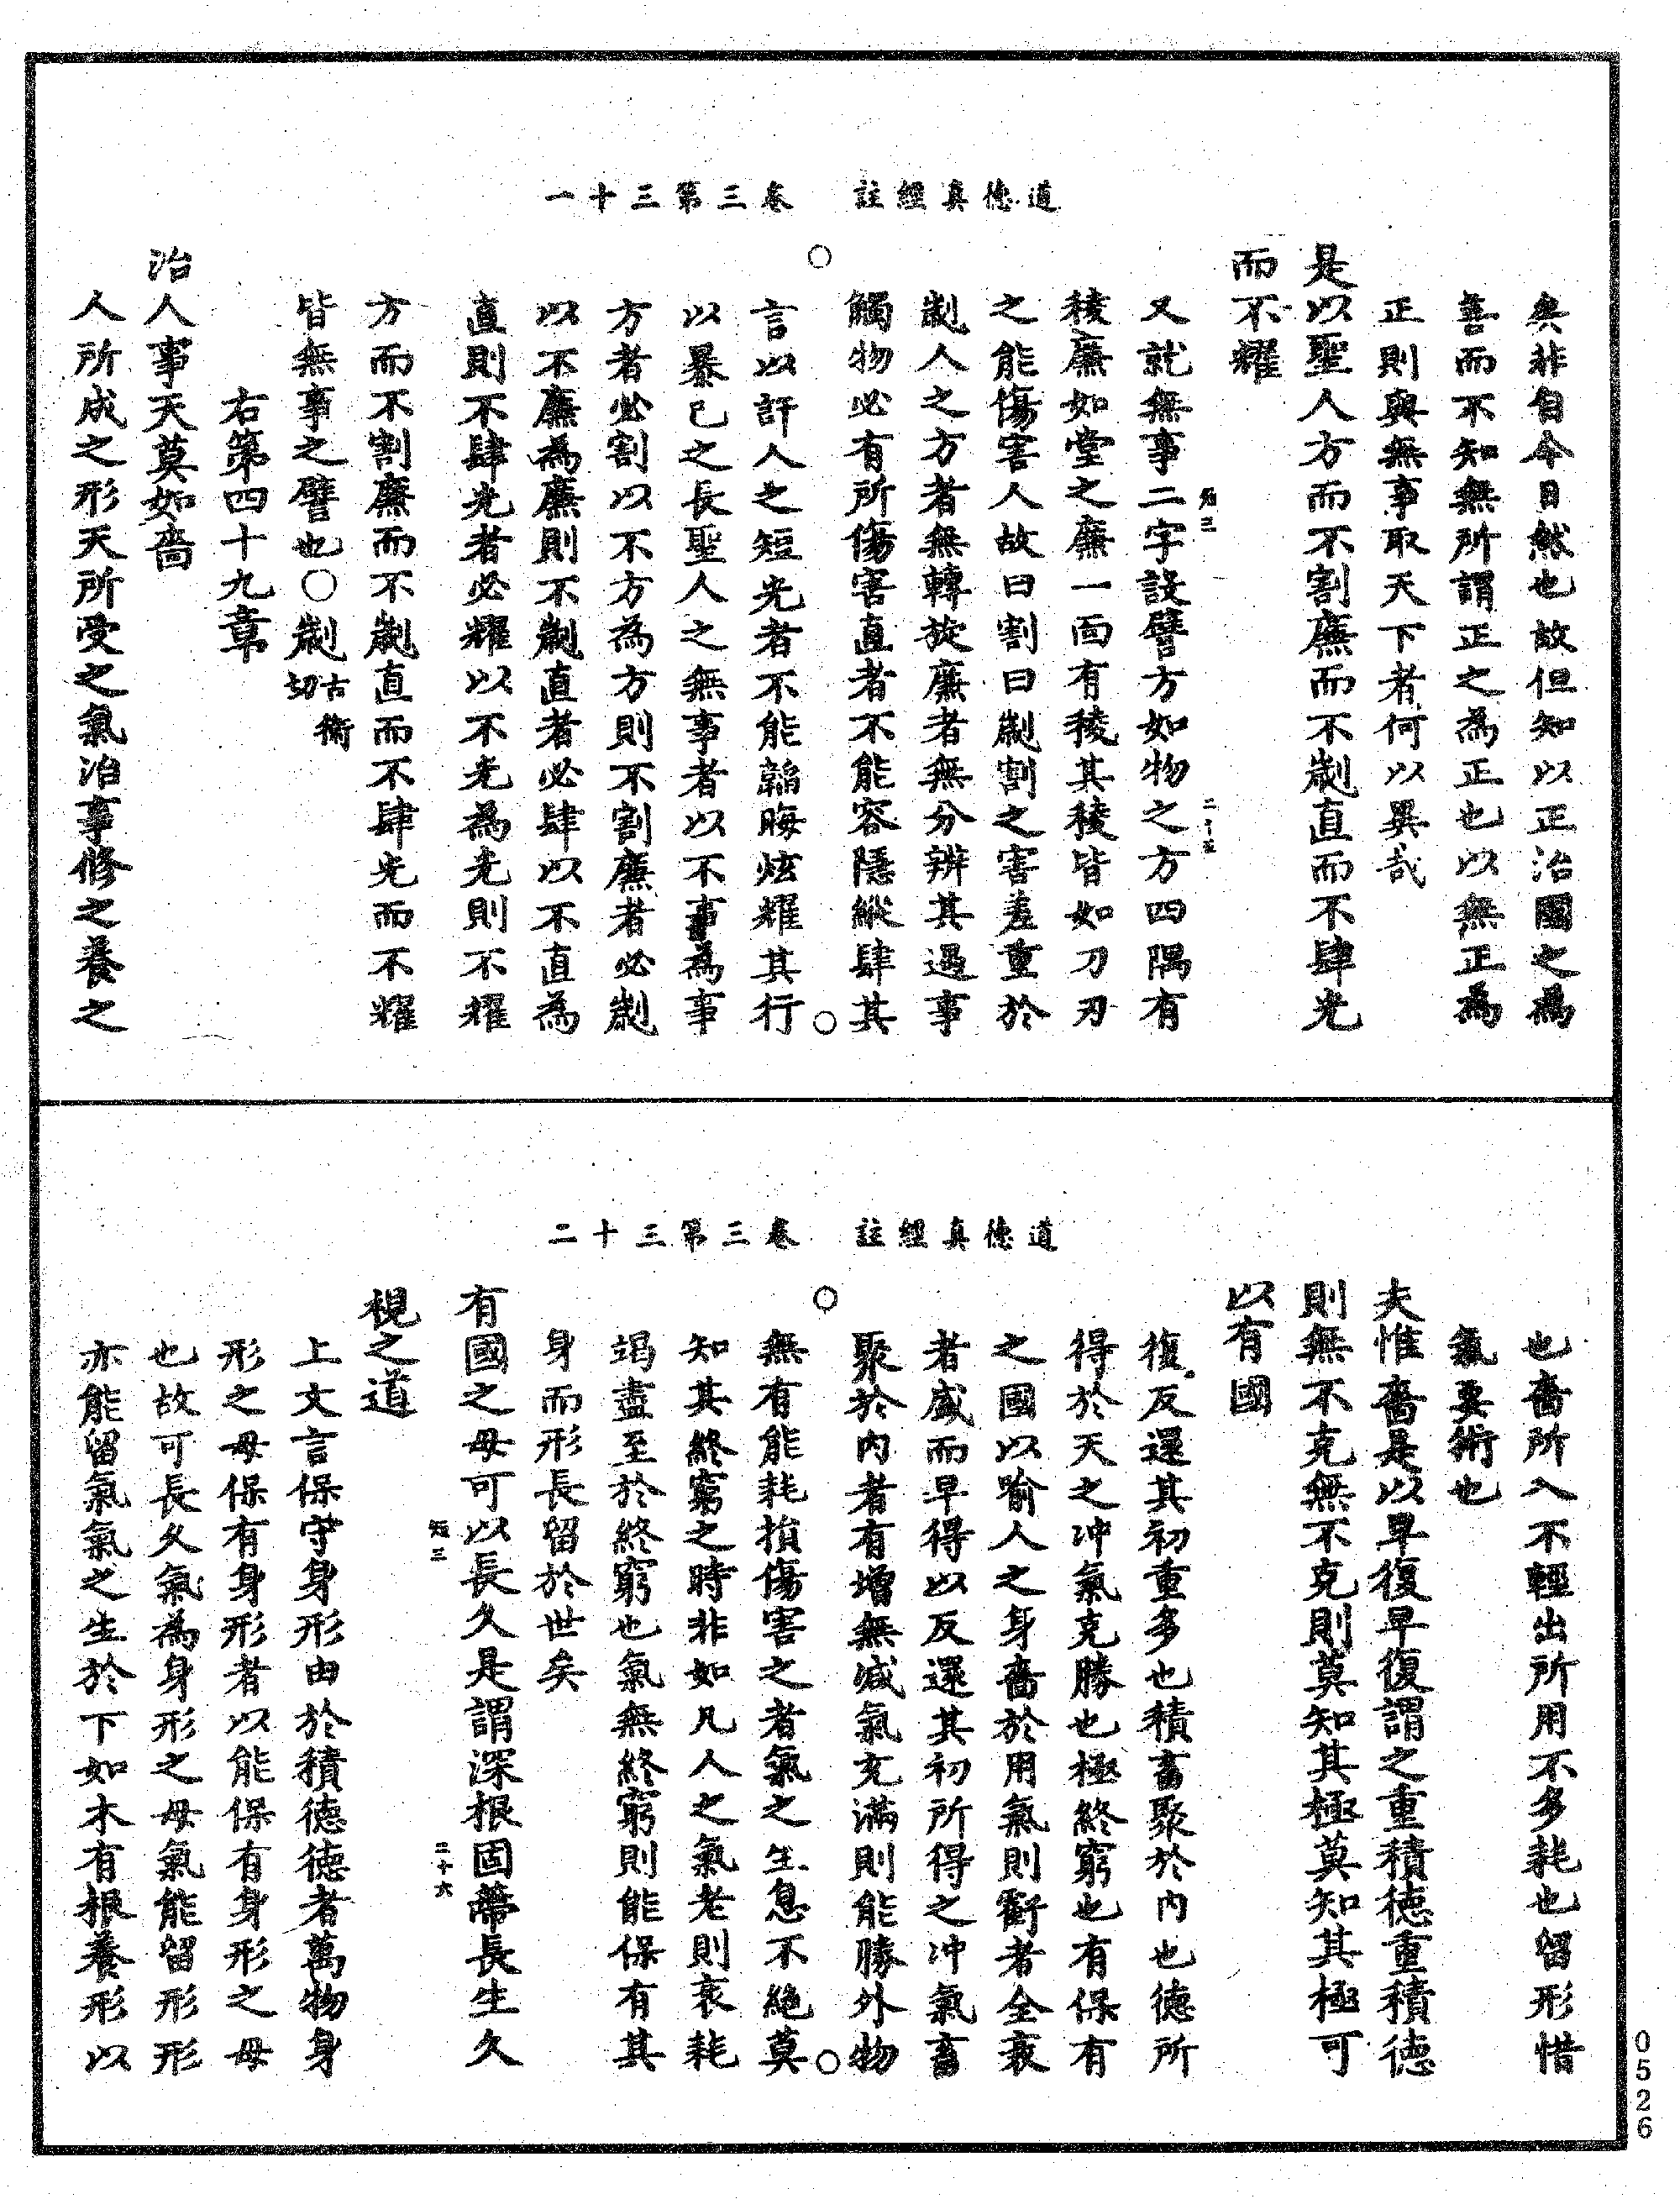 道德真經註　卷三第三十一
矣非自今日然也故但知以正治國之為
善而不知無所謂正之為正也以無正為
正則與無事取天下者何以異哉
是以聖人方而不割廉而不劌直而不肆光
而不耀
知三　二十五
又就無事二字設譬方如物之方四隅有
稜廉如堂之廉一面有稜其稜皆如刀刃
之能傷害人故曰割曰劌割之害差重於
劌人之方者無轉旋廉者無分辨其遇事
觸物必有所傷害直者不能容隱縱肆其
言以訐人之短光者不能韜晦炫耀其行
以暴己之長聖人之無事者以不事為事
方者必割以不方為方則不割廉者必劌
以不廉為廉則不劌直者必肆以不直為
直則不肆光者必耀以不光為光則不耀
方而不割廉而不劌直而不肆光而不耀
皆無事之譬也○劌古衛切
右第四十九章
治人事天莫如嗇
人所成之形天所受之氣治事修之養之
道德真經註　卷三第三十二
也嗇所入不輕出所用不多耗也留形惜
氣要術也
夫惟嗇是以早復早復謂之重積德重積德
則無不克無不克則莫知其極莫知其極可
以有國
復反還其初重多也積畜聚於內也德所
得於天之冲氣克勝也極終窮也有保有
之國以喻人之身嗇於用氣則斵者全衰
者盛而早得以反還其初所得之冲氣畜
聚於內者有增無減氣充滿則能勝外物
無有能耗損傷害之者氣之生息不絕莫
知其終窮之時非如凡人之氣老則衰耗
竭盡至於終窮也氣無終窮則能保有其
身而形長留於世矣
知三　二十六
有國之母可以長久是謂深根固蔕長生久
視之道
上文言保守身形由於積德德者萬物身
形之母保有身形者以能保有身形之母
也故可長久氣為身形之母氣能留形形
亦能留氣氣之生於下如木有根養形以
0526